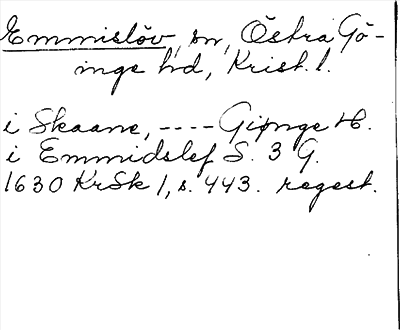 Emmislöv, sn, Östra Gö-
inge hd, Krist. l.
i Skaane, ---- Giønge H.
i Emmidslef S. 3 G.
1630 KrSk 1, s. 443. regest.